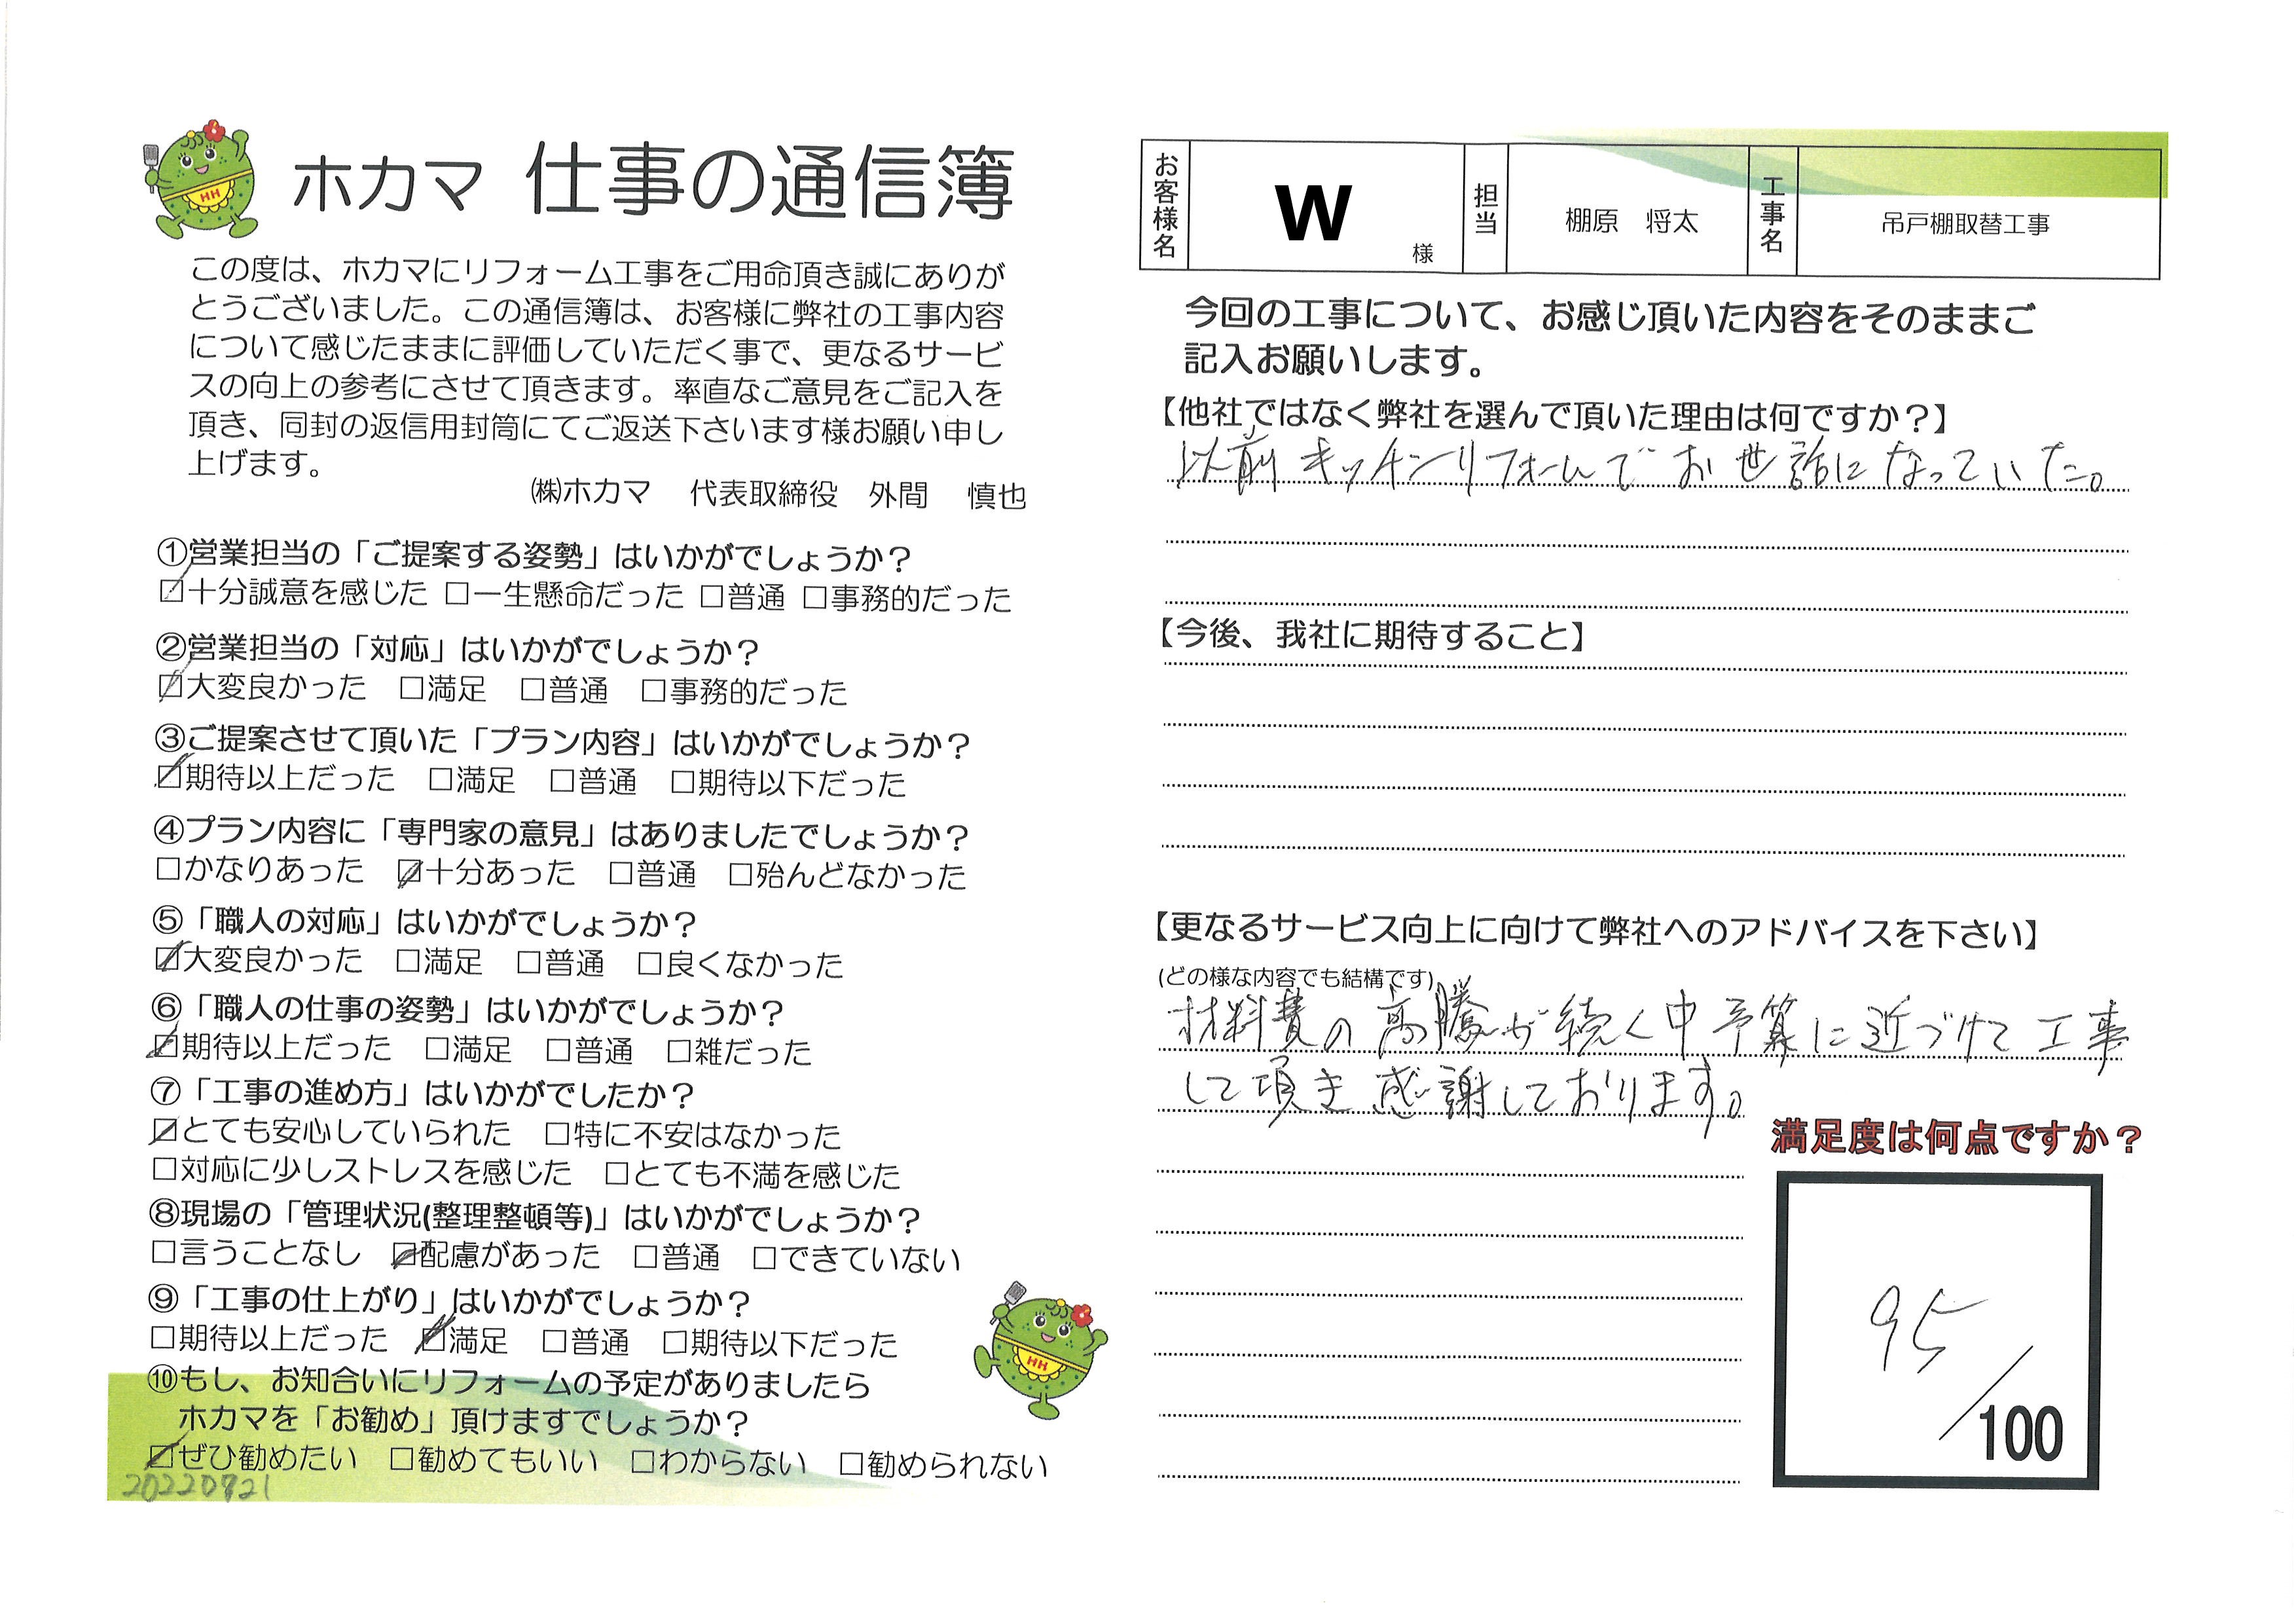 ホカマ 仕事の通信簿
この度は、ホカマにリフォーム工事をご用命頂き誠にありが
とうございました。この通信簿は、お客様に弊社の工事内容
について感じたままに評価していただく事で、更なるサービ
スの向上の参考にさせて頂きます。率直なご意見をご記入を
頂き、同封の返信用封筒にてご返送下さいます様お願い申し
上げます。
㈱ホカマ 代表取締役 外間 慎也
①営業担当の「ご提案する姿勢」はいかがでしょうか？
☑十分誠意を感じた □一生懸命だった □普通 □事務的だった
②営業担当の「対応」はいかがでしょうか？
☑大変良かった □満足 □普通 □事務的だった
③ご提案させて頂いた「プラン内容」はいかがでしょうか？
☑期待以上だった □満足 □普通 □期待以下だった
④プラン内容に「専門家の意見」はありましたでしょうか？
□かなりあった ☑十分あった □普通 □殆んどなかった
⑤「職人の対応」はいかがでしょうか？
☑大変良かった □満足 □普通 □良くなかった
⑥「職人の仕事の姿勢」はいかがでしょうか？
☑期待以上だった □満足 □普通 □雑だった
⑦「工事の進め方」はいかがでしたか？
☑とても安心していられた □特に不安はなかった
□対応に少しストレスを感じた □とても不満を感じた
⑧現場の「管理状況(整理整頓等)」はいかがでしょうか？
□言うことなし ☑配慮があった □普通 □できていない
⑨「工事の仕上がり」はいかがでしょうか？
□期待以上だった ☑満足 □普通 □期待以下だった
⑩もし、お知合いにリフォームの予定がありましたら
ホカマを「お勧め」頂けますでしょうか？
☑ぜひ勧めたい □勧めてもいい □わからない □勧められない
20220721
お客様名 W 様 担当 棚原 将太 工事名 吊戸棚取替工事
今回の工事について、お感じ頂いた内容をそのままご
記入お願いします。
【他社ではなく弊社を選んで頂いた理由は何ですか？】
以前キッチンリフォームでお世話になっていた。
【今後、我社に期待すること】
【更なるサービス向上に向けて弊社へのアドバイスを下さい】
(どの様な内容でも結構です)
材料費の高騰が続く中予算に近づけて工事
して頂き感謝しております。
満足度は何点ですか？
95/100
HH
HH